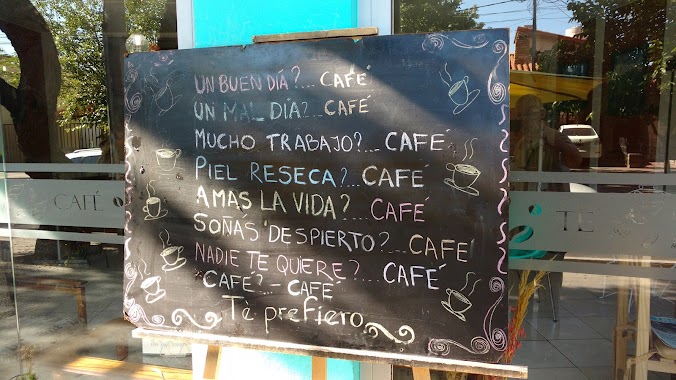 UN BUEN DÍA?... CAFÉ
UN MAL DÍA?... CAFÉ
MUCHO TRABAJO?... CAFÉ
PIEL RESECA?... CAFÉ
AMAS LA VIDA? ... CAFÉ
SOÑÁS DESPIERTO?... CAFE
NADIE TE QUIERE?... CAFÉ
CAFÉ?.- CAFÉ
Tè prefiero
CAFÉ
TE